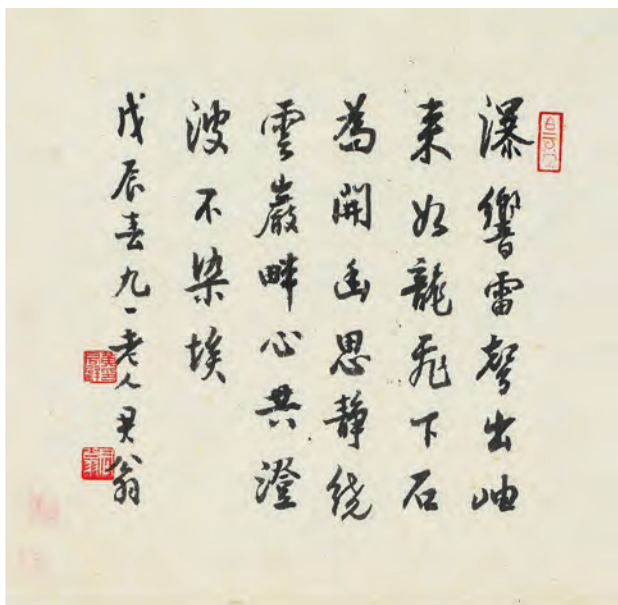 瀑響雷聲出岫
来如龍飛下石
為開幽思靜繞
雲巖畔心共澄
波不染埃
戊辰春九一老人君翁